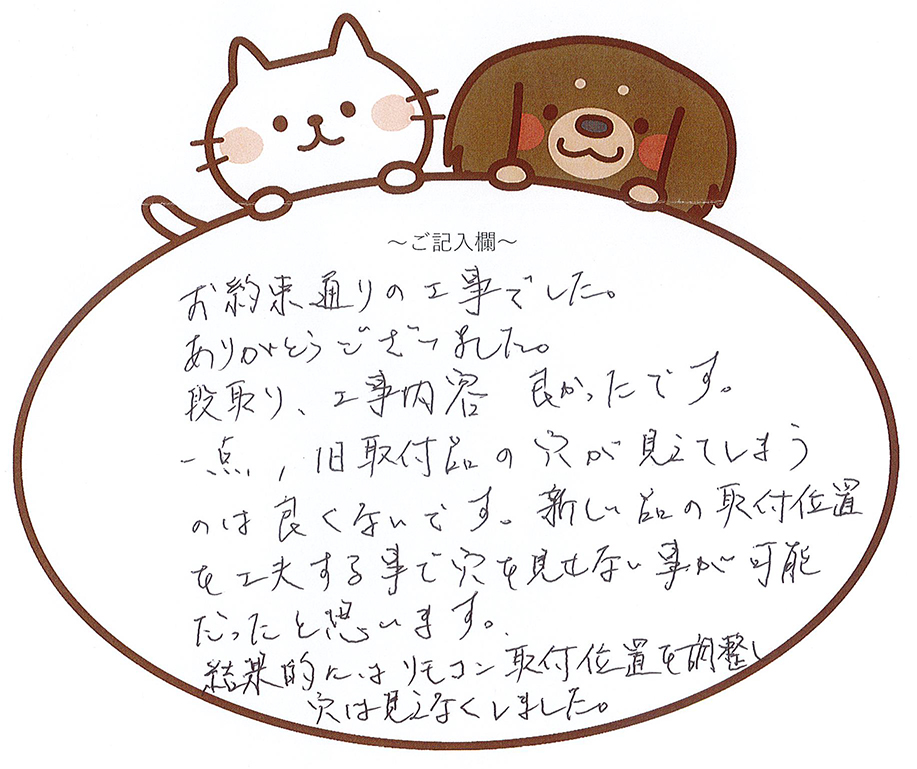 ～ご記入欄～
お約束通りの工事でした。
ありがとうございました。
段取り、工事内容 良かったです。
一点，旧取付品の穴が見えてしまう
のは良くないです。新しい品の取付位置
を工夫する事で穴を見せない事が可能
だったと思います。
結果的にはリモコン取付位置を調整し
穴は見えなくしました。